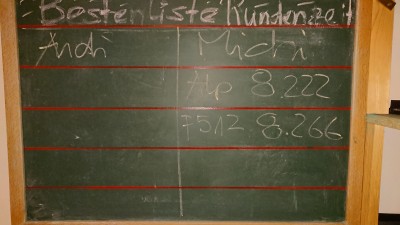 Bestenliste Kundenzeit
Andi Michi
Hp 8.222
7512 8.266